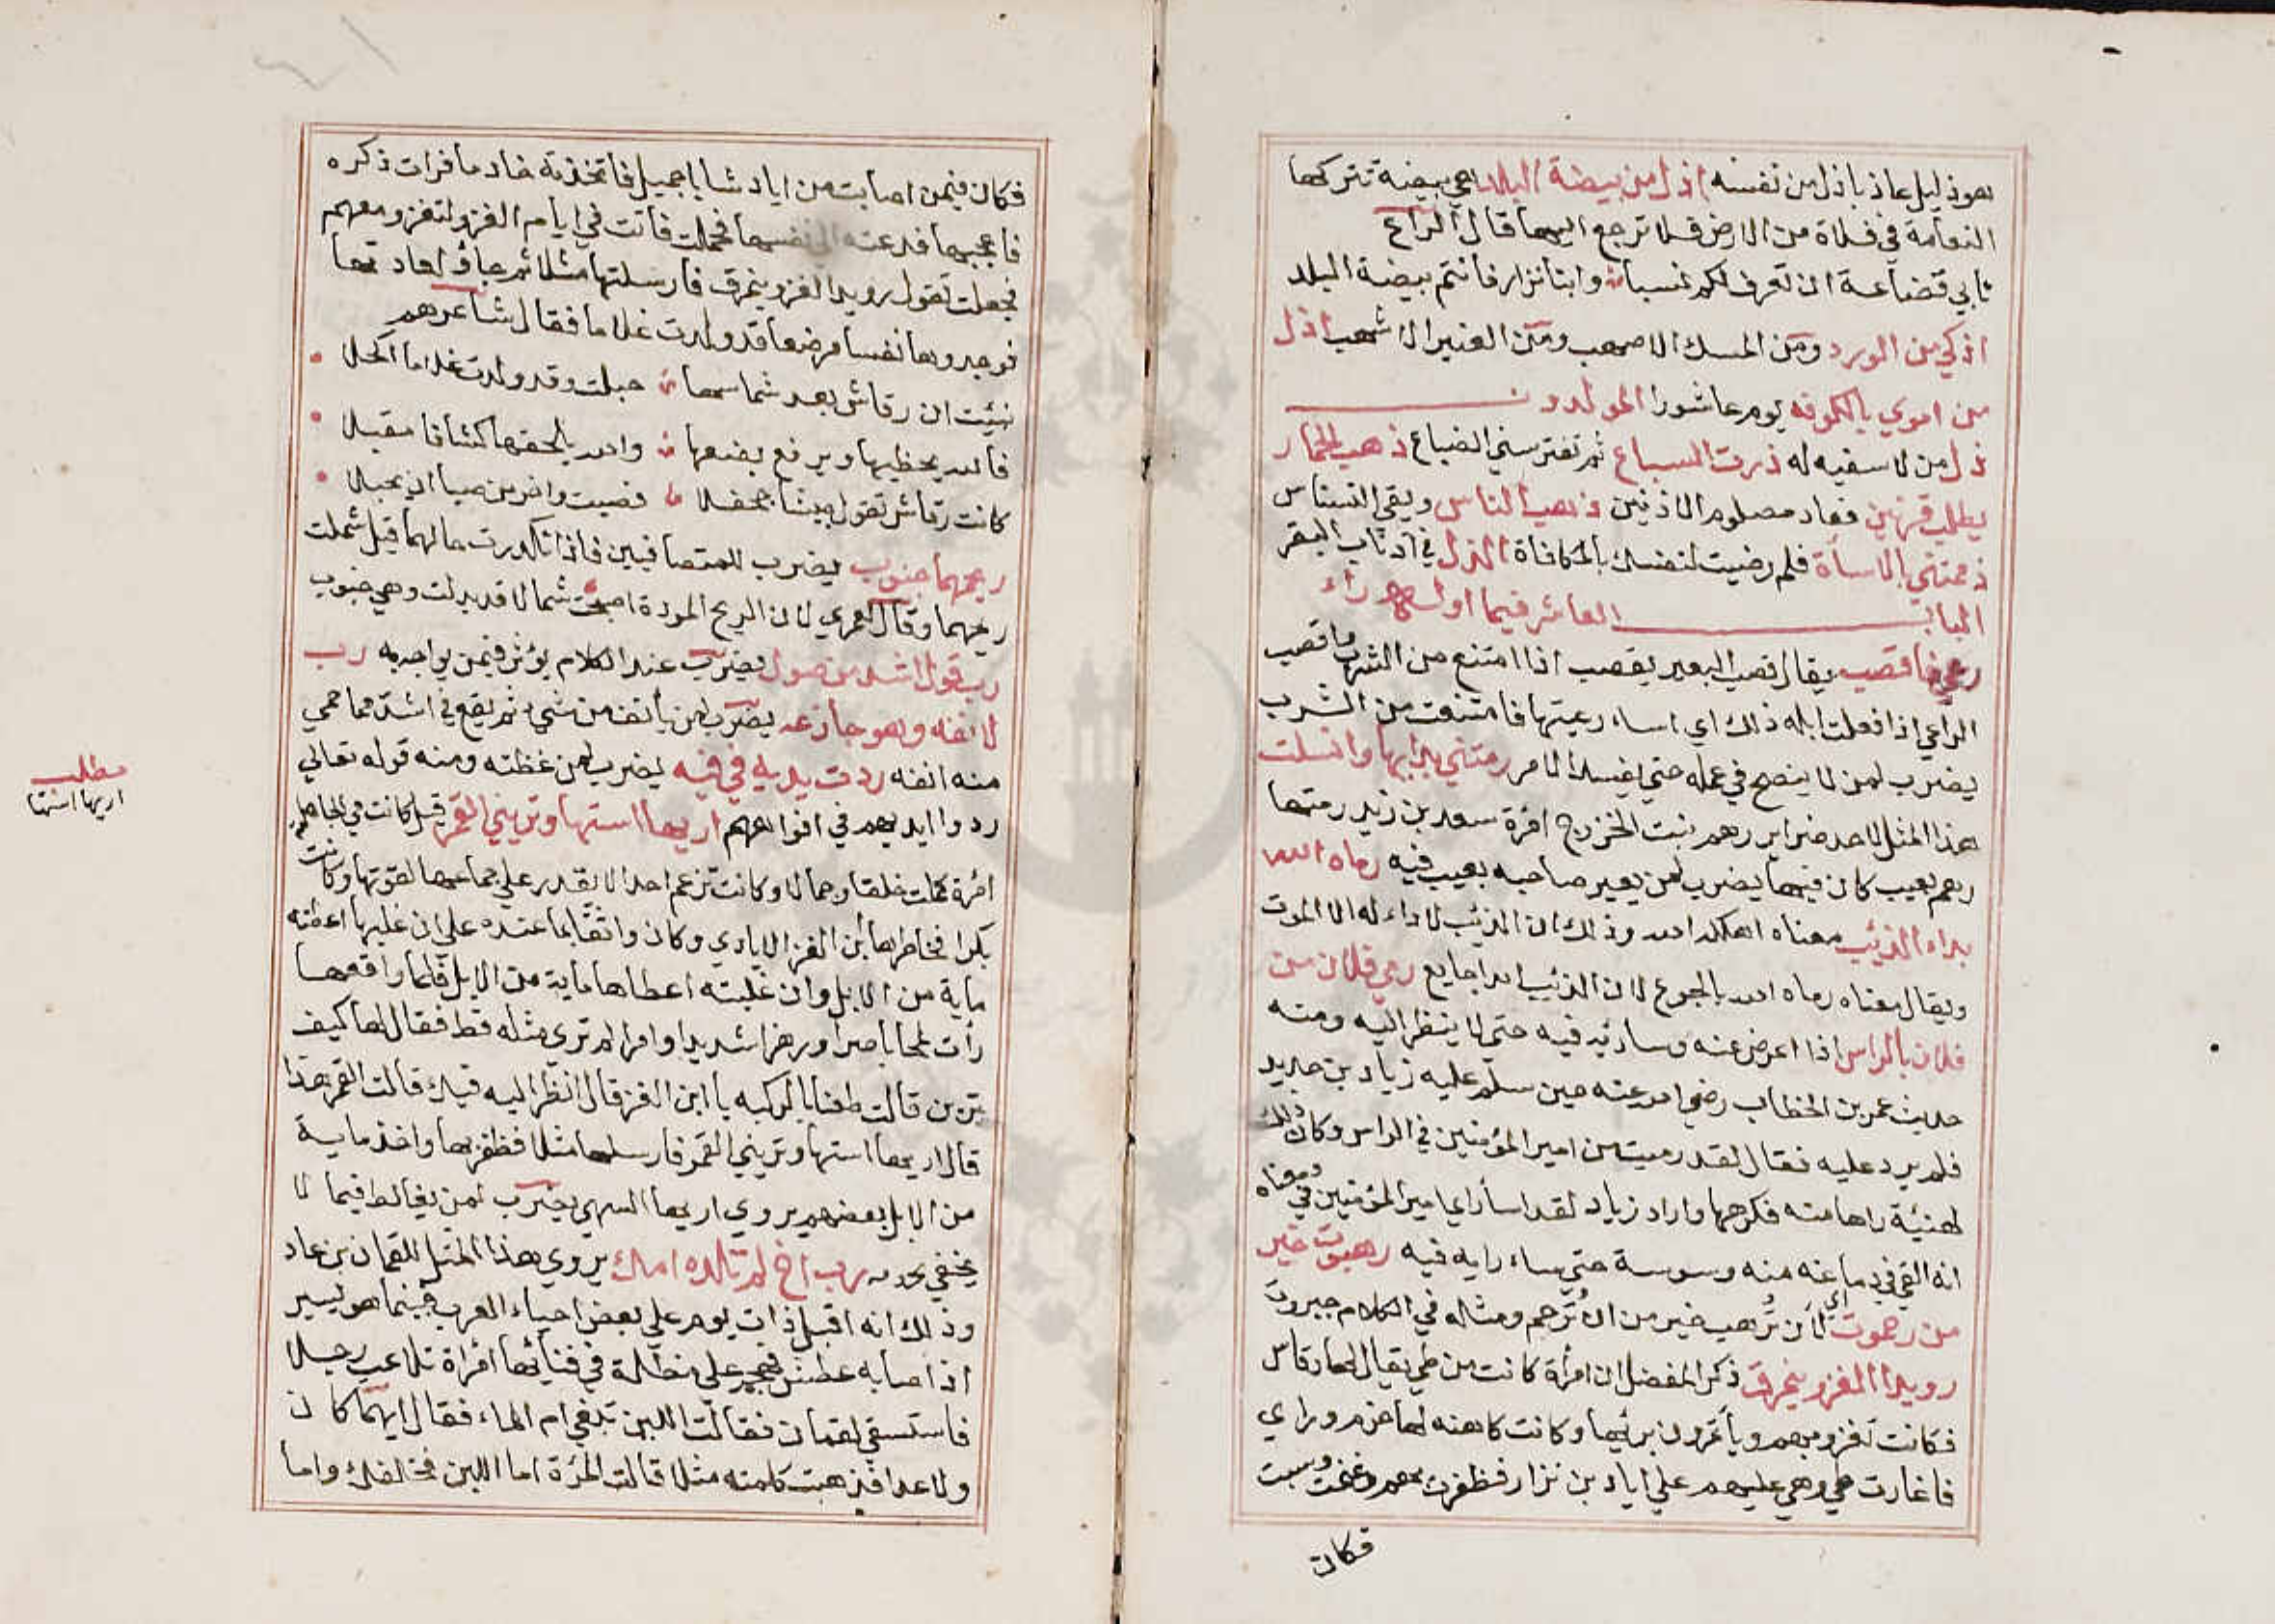 هو ذليل عاذ باذل من نفسه اذل من بيضة البلد هي بيضة تتركها
النعامة في فلاة من الارض فلا ترجع اليها قال الراعي
تابي قضاعة ان تعرف لكم نسبا وابنا نزار فانتم بيضة البلد
اذكي من الورد ومن المسك الاصهب ومن العنبر الاشهب اذل
من اموي بالكوفه يوم عاشورا المولدون
ذل من لا سفيه له ذرت السباع ثم تفترسني الضباع ذهب الحمار
يطلب قرنين فعاد مصلوم الاذنين ذهب الناس وبقي النسناس
ذممتني بالاساة فلم رضيت لنفسك بالمكافاة الذل في اذناب البقر
الباب العاشر فيما اوله راء
رعي فاقصب يقال قصب البعير يقصب اذا امتنع من الشرب واقصب
الراعي اذا فعلت ابله ذلك اي اساء رعيتها فامتنعت من الشرب
يضرب لمن لا ينصح في عمله حتي يفسد الامر رمتني بدايها وانسلت
هذا المثل لاحد ضراير رهم بنت الخزرج امرة سعد بن زيد رمتها
رهم بعيب كان فيها يضرب لمن يعير صاحبه بعيب فيه رماه الله
بداء الذيب معناه اهلكه الله وذلك ان الذيب لا داء له الا الموت
ويقال معناه رماه الله بالجوع لان الذيب ابدا جايع رمي فلان من
فلان بالراس اذا اعرض عنه وساء رايه فيه حتي لا ينظر اليه ومنه
حديث عمر بن الخطاب رضي الله عنه حين سلم عليه زياد بن حدير
فلم يرد عليه فقال لقد رميت من امير المؤمنين في الراس وكان ذلك
لهيئة راها منه فكرهها واراد زياد لقد اساء راي امير المؤمنين في ومعناه
انه القي في دماغه منه وسوسة حتي ساء رايه فيه رهبوت خير
من رحموت اي لان ترهب خير من ان ترحم ومثاله في الكلام جبروت
رويدا الغزو ينمرق ذكر المفضل ان امراة كانت من طي يقال لها رقاش
فكانت تغزو بهم ويأتمرون برئيها وكانت كاهنه لها حزم وراي
فاغارت طي وهي عليهم علي اياد بن نزار فظفرت بهم وغنمت وسبت
فكان
فكان فيمن اصابت من اياد شابا جميل فاتخذته خادما فرات ذكره
فاعجبها فدعته الي نفسها فحملت فاتت في ايام الغزو لتغزو معهم
فجعلت تقول رويدا الغزو ينمرق فارسلتها مثلا ثم جاؤا لعادتها
فوجدوها نفسا مرضعا قد ولدت غلاما فقال شاعرهم
نبئت ان رقاش بعد شماسها حبلت وقد ولدت غلاما اكحلا
فالله يحظيها ويرفع بضعها والله يلحقها كشافا مقبلا
كانت رقاش تقول جيشا جحفلا فصبت واحر من صبا ان يحبلا
ريحهما جنوب يضرب للمتصافيين فاذا تكدرت حالهما قيل شملت
ريحهما وقال لعمري لان الريح المودة اصبحت شمالا قد بدلت وهي جنوب
رب قول اشد من صول يضرب عند الكلام يؤثر فيمن يواجه به رب
لانفه وهو جاذعه يضرب لمن يأنف من شيء ثم يقع في اشد مما حمي
منه انفه ردت يديه في فيه يضرب لمن غظته ومنه قوله تعالي
ردوا ايديهم في افواههم اريها استها وتريني القمر قيل كانت في الجاهلية
امرة كملت خلقا وجمالا وكانت تزعم احدا لا يقدر علي جماعها لقوتها وكانت
بكرا فخاطرها ابن الغز الايادي وكان واثقا بما عنده علي ان غلبها اعطته
ماية من الابل وان غلبته اعطاها ماية من الابل فلما واقعها
رأت لمحا باصرا ورهزا شديدا وامرا لم تري مثله قط فقال لها كيف
ترين قالت طعنا بالركبه يا ابن الغز قال انظر اليه فيك قالت القمر هذا
قال اريها استها وتريني القمر فارسلها مثلا فظفر بها واخذ ماية
من الابل بعضهم يروي اريها السهي يضرب لمن يغالط فيما لا
يخفي رب اخ لم تلده امك يروي هذا المثل للقمان بن عاد
وذلك انه اقبل ذات يوم علي بعض احياء العرب فبينما هو يسير
اذ اصابه عطش فهجم علي مظلة في فنائها امراة تلاعب رجلا
فاستسقي لقمان فقالت اللبن تبغي ام الماء فقال ايهما كان
ولا عدا فذهبت كلمته مثلا قالت المرة اما اللبن فخلفك واما
مطلب
اريها استها